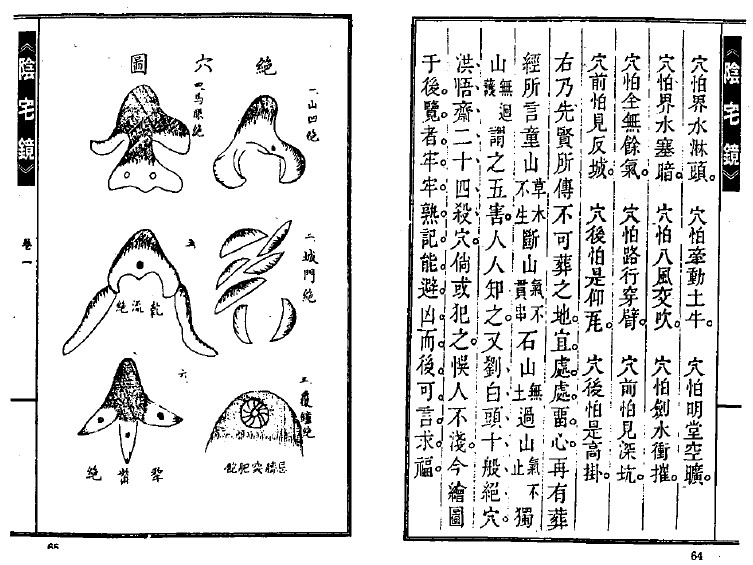 《陰宅鏡》
穴怕界水淋頭。穴怕牽動土牛。穴怕明堂空曠。
穴怕界水塞暗。穴怕八風交吹。穴怕劍水衝摧。
穴怕全無餘氣。穴怕路行穿臂。穴前怕見深坑。
穴前怕見反城。穴後怕是仰瓦。穴後怕是高掛。
右乃先賢所傳不可葬之地。宜處處畱心。再有葬
經所言童山草木不生斷山氣不貫串石山無土過山氣不止獨
山無迴護謂之五害。人人知之。又劉白頭十般絕穴。
洪悟齋二十四殺穴。倘或犯之。悞人不淺。今繪圖
于後。覽者牢牢熟記。能避凶而後可言求福。
64
絕穴圖
一山凹絕
二城門絕
三覆鐘絕
突肥飽
四馬眼絕
五
乾流絕
六
犂觜絕
《陰宅鏡》
卷一
65